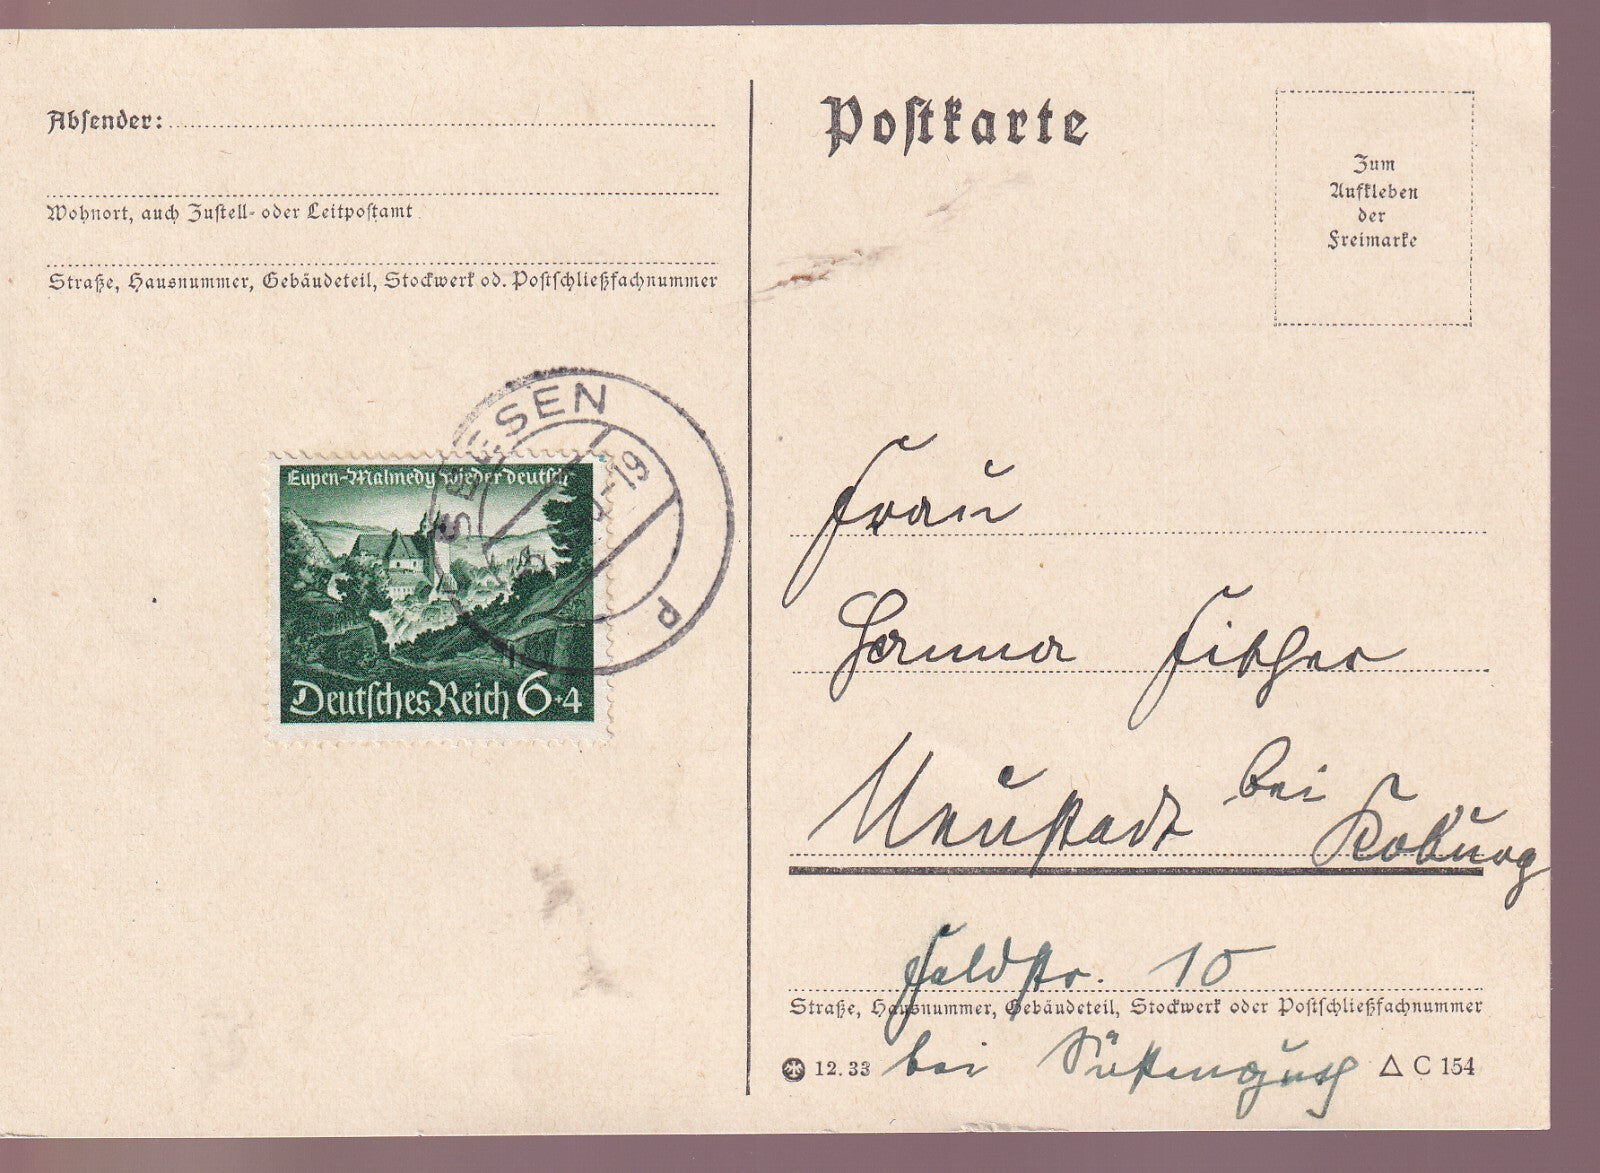 Absender:
Wohnort, auch Zustell- oder Leitpostamt
Straße, Hausnummer, Gebäudeteil, Stockwerk od. Postschließfachnummer
Postkarte
Zum
Aufkleben
der
Freimarke
SEESEN
-19
P
Eupen-Malmedy wieder deutsch
Deutsches Reich 6+4
Frau
Hanna
Neustadt bei
Koburg
Feldstr. 10
Straße, Hausnummer, Gebäudeteil, Stockwerk oder Postschließfachnummer
12.33 bei
△ C 154